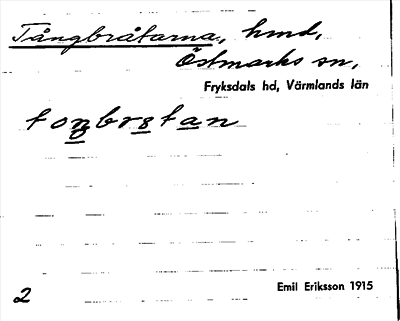 Tångbråtarna, hmd,
Östmarks sn,
Fryksdals hd, Värmlands län
toŋbrɛtan
2 Emil Eriksson 1915